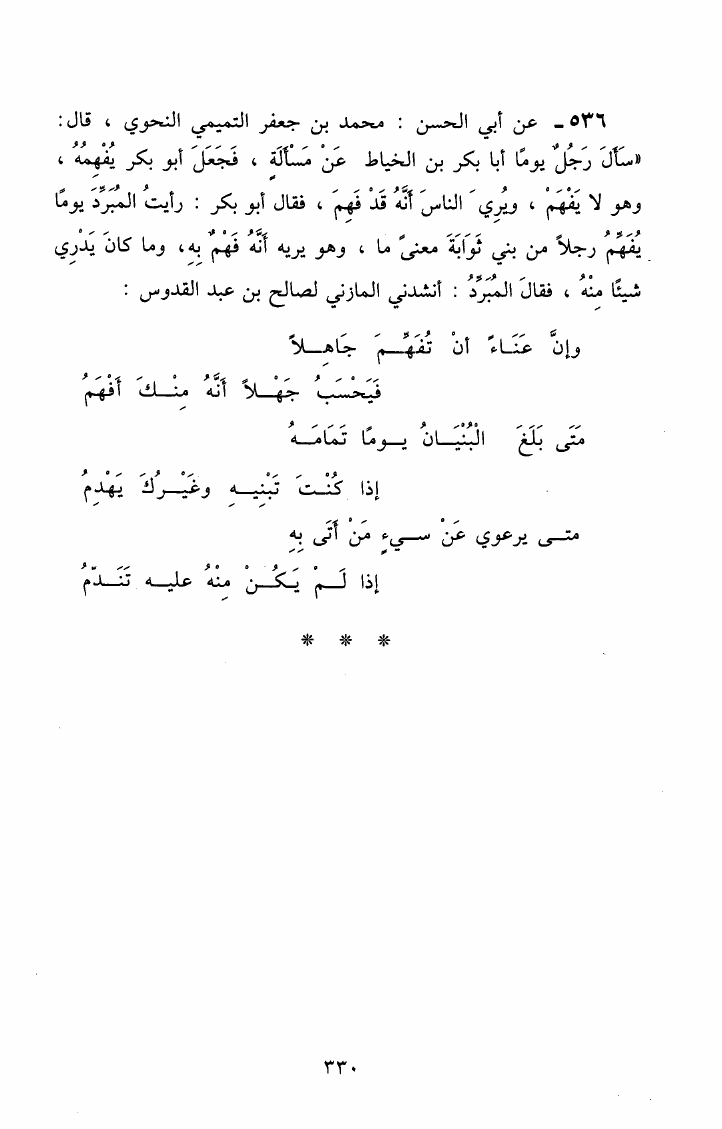 ٥٣٦ - عن أبي الحسن : محمد بن جعفر التميمي النحوي ، قال :
«سَأَلَ رَجُلٌ يومًا أبا بكر بن الخياط عَنْ مَسْأَلَةٍ ، فَجَعَلَ أبو بكر يُفْهِمُهُ ،
وهو لا يَفْهَمْ ، ويُرِي َ الناسَ أَنَّهُ قَدْ فَهِمَ ، فقال أبو بكر : رأيتُ المُبَرِّدَ يومًا
يُفَهِّمُ رجلاً من بني ثَوَابَةَ معنىً ما ، وهو يريه أَنَّهُ فَهْمٌ بِهِ، وما كانَ يَدْرِي
شيئًا مِنْهُ ، فقالَ المُبَرِّدُ : أنشدني المازني لصالح بن عبد القدوس :
وإنَّ عَنَـاءً أنْ تُفَهِّـمَ جَاهِـلاً
فَيَحْسَبُ جَهْـلاً أَنَّهُ مِنْـكَ أَفْهَمُ
مَتَى بَلَغَ الْبُنْيَـانُ يـومًا تَمَامَـهُ
إذا كُنْـتَ تَبْنِيـهِ وغَيْـرُكَ يَهْدِمُ
متـى يرعوي عَنْ سـيءٍ مَنْ أَتَى بِهِ
إذا لَـمْ يَكُـنْ مِنْهُ عليـه تَنَـدُّمُ
* * *
٣٣٠